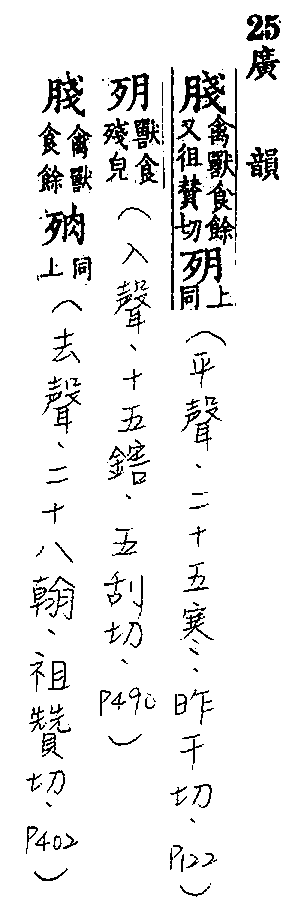 25廣韻
𦠆禽獸食餘又徂贊切𣦼上同（平聲、二十五寒、昨干切、P122）
𣦼獸食殘皃（入聲、十五鎋、五刮切、P490）
禽獸食餘上同（去聲、二十八翰、祖贊切、P402）